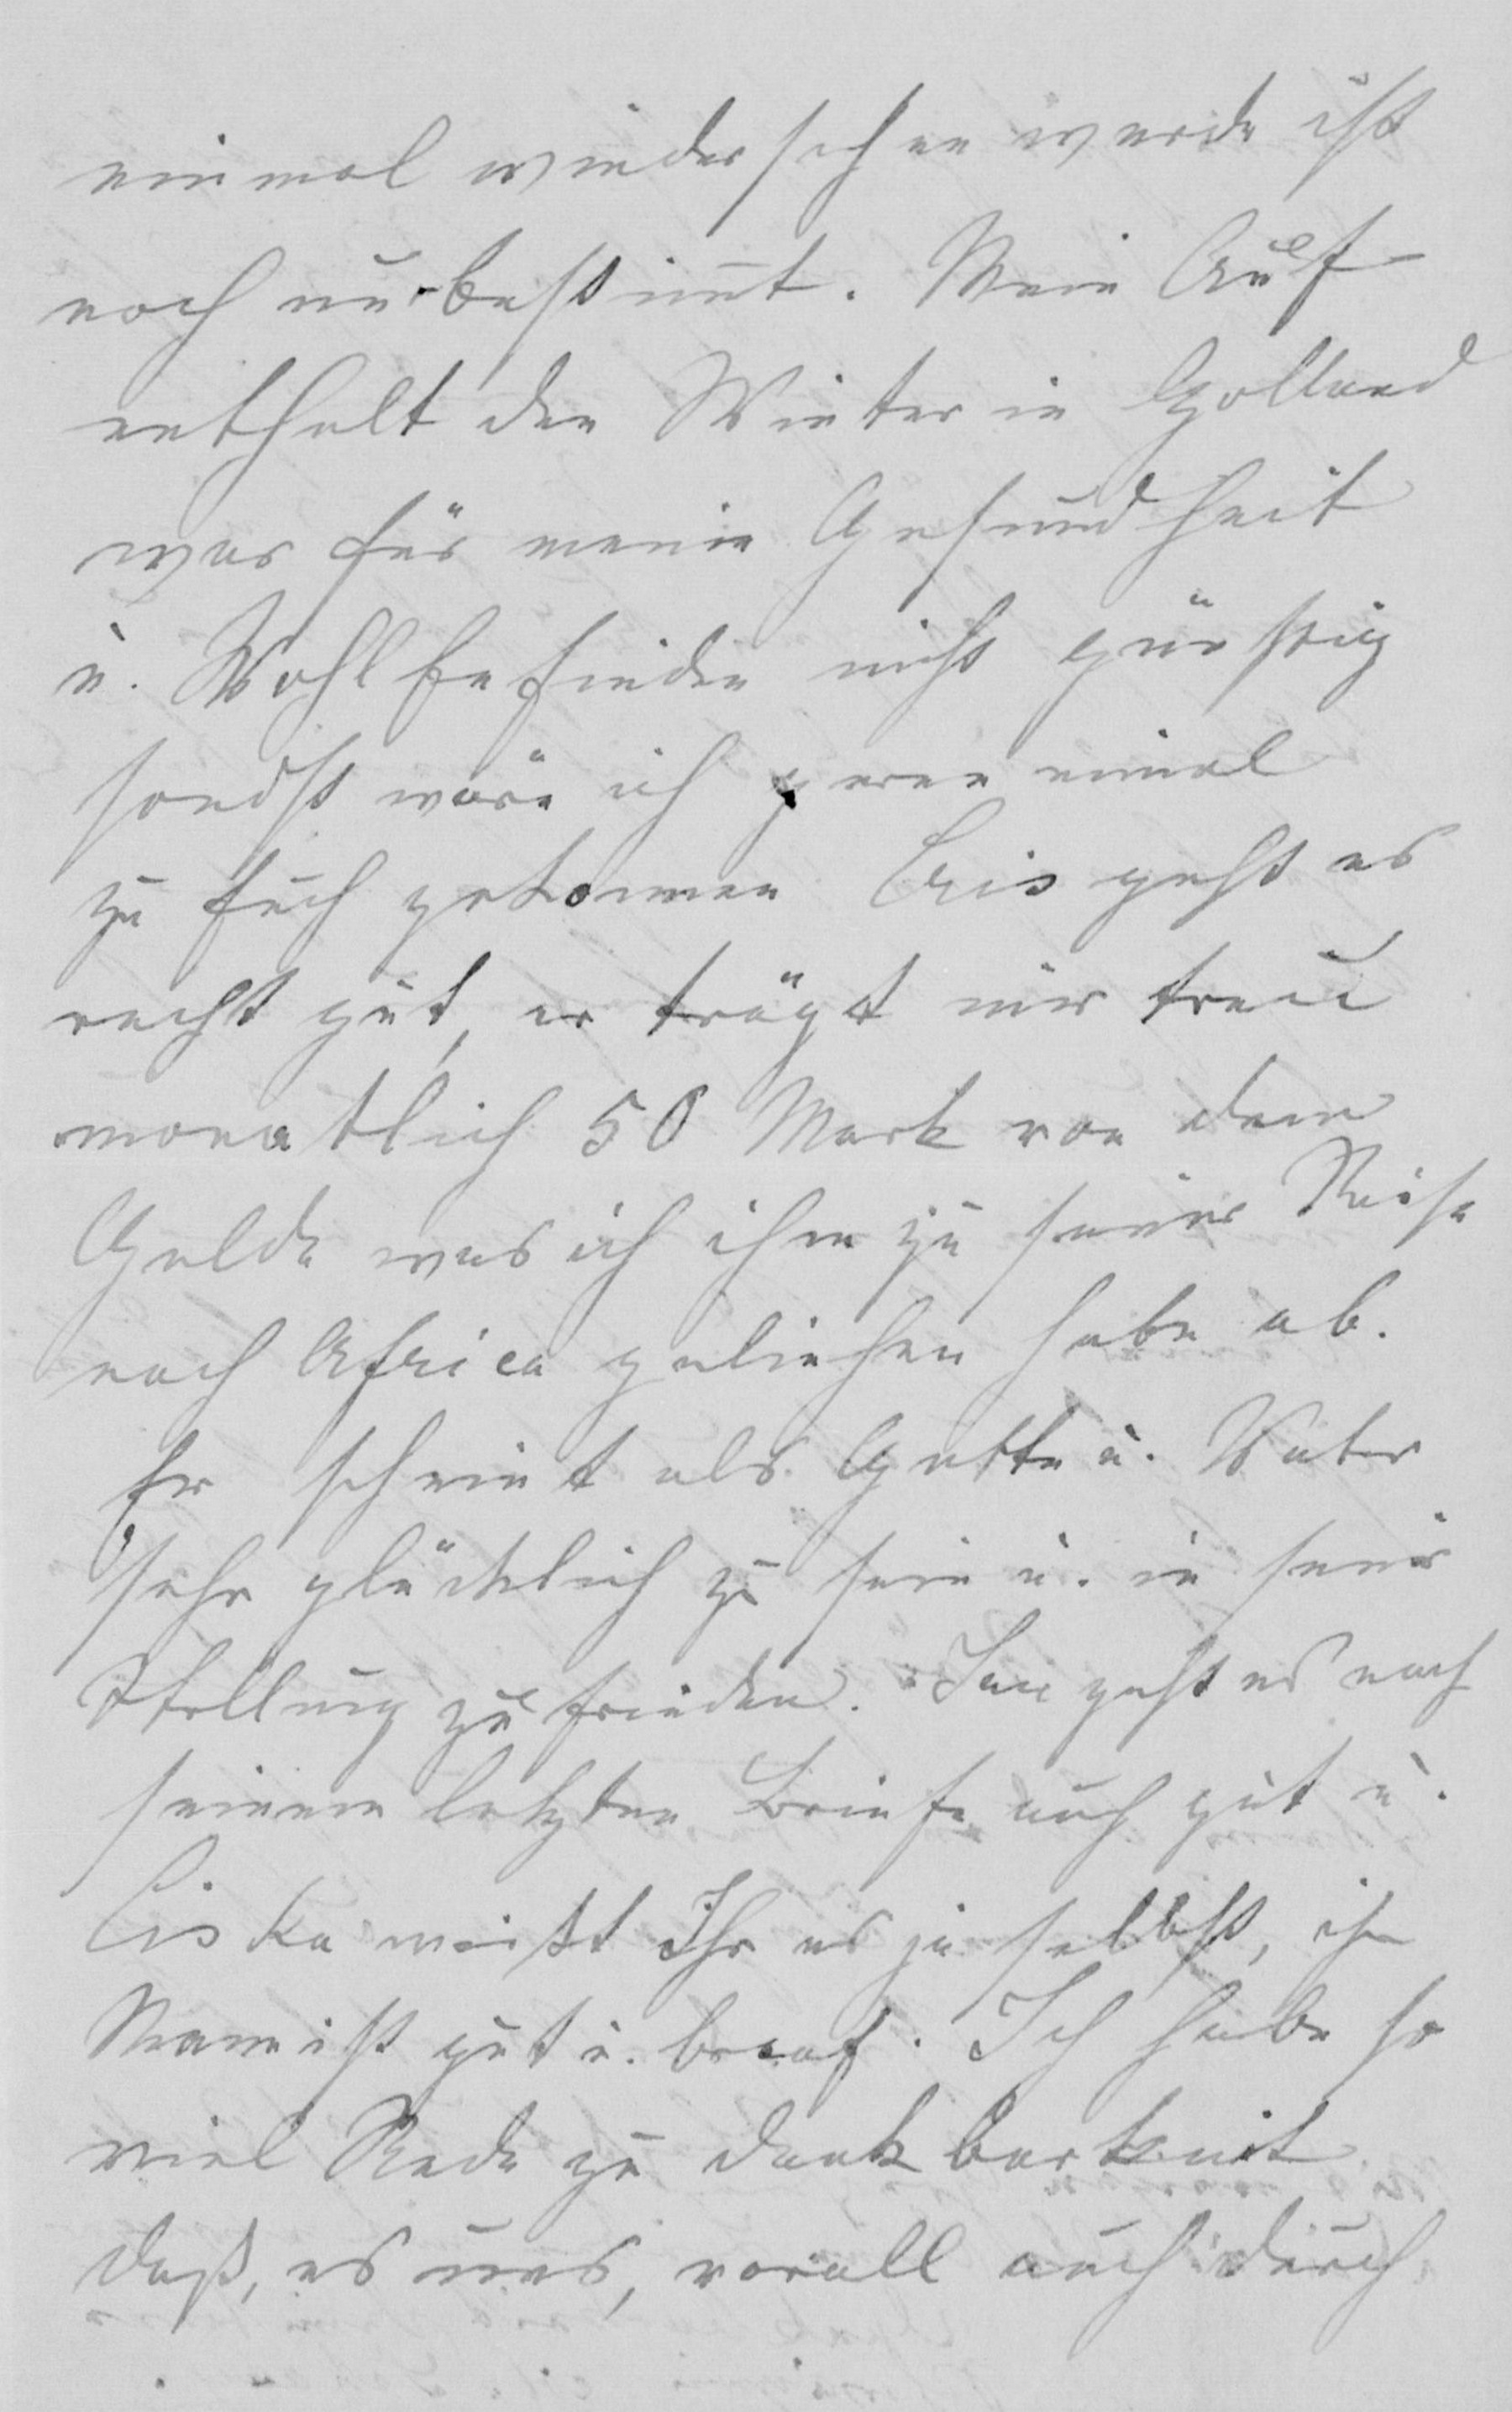 einmal wiedersehen werde ist
noch unbestimt. Mein Auf-
enthalt den Winter in Holland
war für meine Gesundheit
u. Wohlbefinden nicht günstig
sondst wäre ich gerne einmal
zu Euch gekommen Cris geht es
recht gut, er trägt mir treu
monatlich 50 Mark von dem
Gelde was ich ihm zu seiner Reise
nach Africa geliehen habe ab.
Er scheint als Gatte u. Vater
sehr glücklich zu sein u. in seiner
Stellung zufrieden. Jan geht es nach
seinem letzten Briefe auch gut u.
Ciska weißt Ihr es ja selbst, ihr
Mann ist gut u. braf. Ich habe so
viel Rede zu dankbarkeit
daß, es uns, vorall auch durch